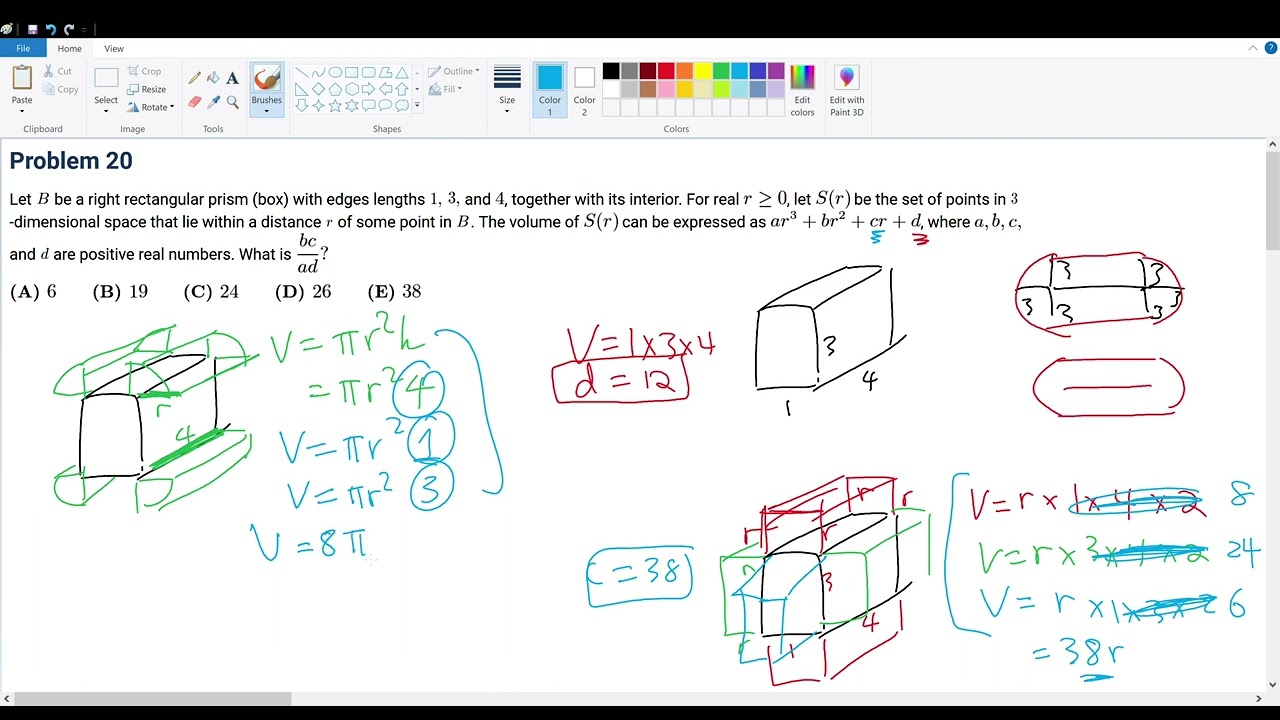 File Home View
Paste Cut Copy Clipboard
Select Crop Resize Rotate Image
Tools
A
Brushes
Shapes
Outline Fill
Size
Color 1
Color 2
Edit colors
Colors
Edit with Paint 3D
Problem 20
Let B be a right rectangular prism (box) with edges lengths 1, 3, and 4, together with its interior. For real r ≥ 0, let S(r) be the set of points in 3
-dimensional space that lie within a distance r of some point in B. The volume of S(r) can be expressed as ar³ + br² + cr + d, where a, b, c,
and d are positive real numbers. What is bc/ad?
(A) 6 (B) 19 (C) 24 (D) 26 (E) 38
V = πr²h
= πr² 4
V = πr² 1
V = πr² 3
V = 8π
r
4
V = 1x3x4
d = 12
3
4
1
3 3
3 3 3 3
c = 38
r r r r
r 3
4
r 1
V = r x 1x4x2 8
V = r x 3x4x2 24
V = r x 1x3x2 6
= 38r